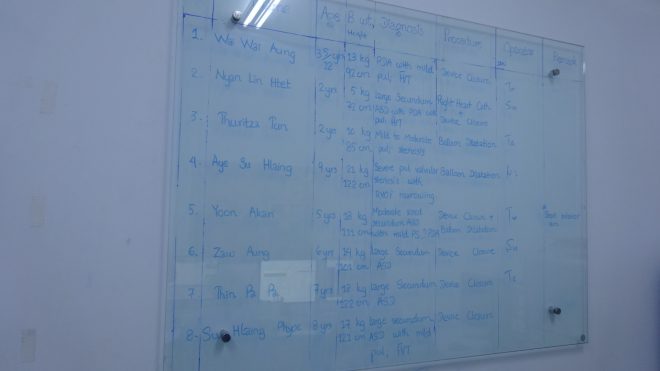 Age B.wt, Diagnosis Procedure Operator Remark
Height
1. Wai Wai Aung 3 5/12 yrs 13 kg PDA with mild Device Closure
92 cm pul; HT
2. Nyan Lin Htet 2 yrs 5 kg large Secundum Right Heart Cath
72 cm ASD with PDA with +
pul; HT Device closure
3. Thuritza 2 yrs 10 kg Mild to Moderate Balloon Dilatation
85 cm pul; stenosis
4. Aye Su Hlaing 9 yrs 21 kg Severe pul valvular Balloon Dilatation
122 cm stenosis with
RVOT narrowing.
5. Yoon 5 yrs 18 kg Moderate sized Device Closure +
secundum ASD Balloon Dilatation
with mild PS,
6. Zaw Aung 6 yrs 14 kg large Secundum Device Closure
101 cm ASD
7. Thin Pa Pa 7 yrs 18 kg large Secundum Device Closure
122 cm ASD
8. Su Hlaing Phyoe 8 yrs 17 kg large secundum Device Closure
121 cm ASD with mild
pul; HT